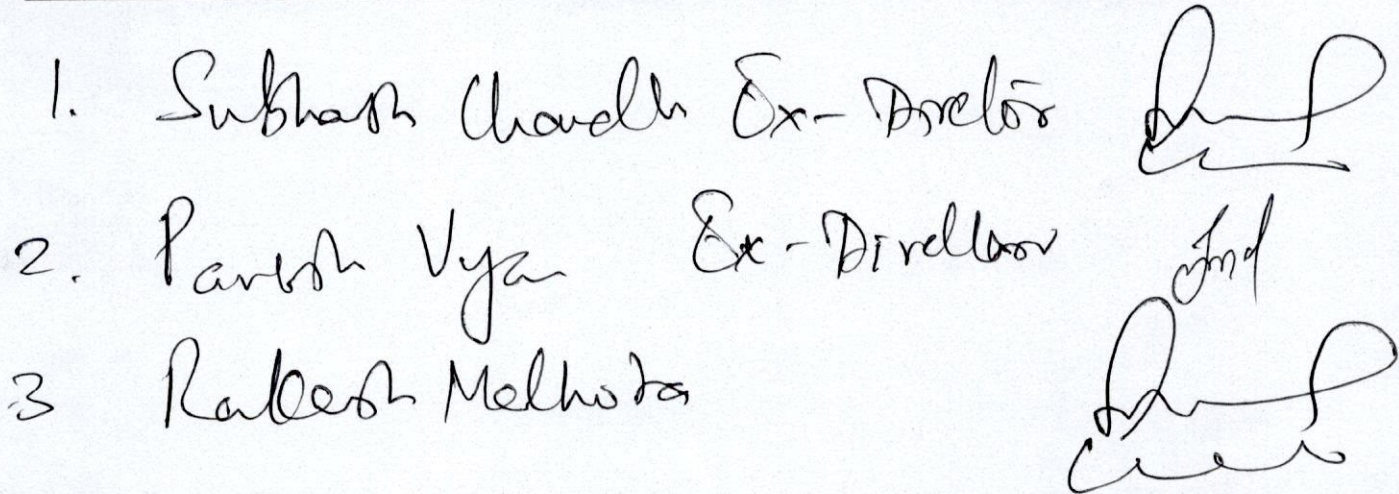 1. Subhash Chandh Ex-Director
2. Paresh Vyas Ex-Director
3 Rakesh Malhotra